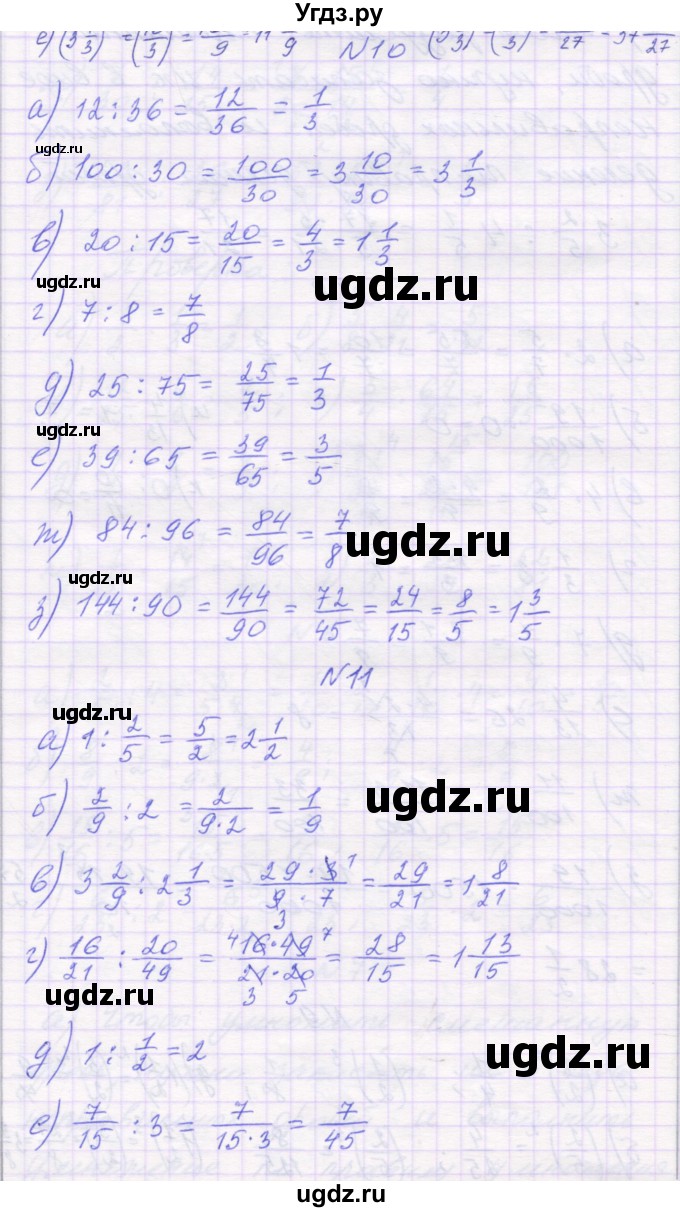 Угдз.ру
е) (3 1/3)² = (10/3)² = 100/9 = 11 1/9
№10
а) 12 : 36 = 12/36 = 1/3
ugdz.ru
б) 100 : 30 = 100/30 = 3 10/30 = 3 1/3
в) 20 : 15 = 20/15 = 4/3 = 1 1/3
ugdz.ru ugdz.ru
г) 7 : 8 = 7/8
д) 25 : 75 = 25/75 = 1/3
ugdz.ru
е) 39 : 65 = 39/65 = 3/5
ж) 84 : 96 = 84/96 = 7/8
ugdz.ru
ugdz.ru
з) 144 : 90 = 144/90 = 72/45 = 24/15 = 8/5 = 1 3/5
№11
ugdz.ru
а) 1 : 2/5 = 5/2 = 2 1/2
б) 2/9 : 2 = 2/(9·2) = 1/9
ugdz.ru
в) 3 2/9 : 2 1/3 = (29 · 3 1)/(9 · 7) = 29/21 = 1 8/21
3
г) 16/21 : 20/49 = (4 16·49 7)/(21·20) = 28/15 = 1 13/15
3 5
ugdz.ru
д) 1 : 1/2 = 2
ugdz.ru
е) 7/15 : 3 = 7/(15·3) = 7/45
ugdz.ru